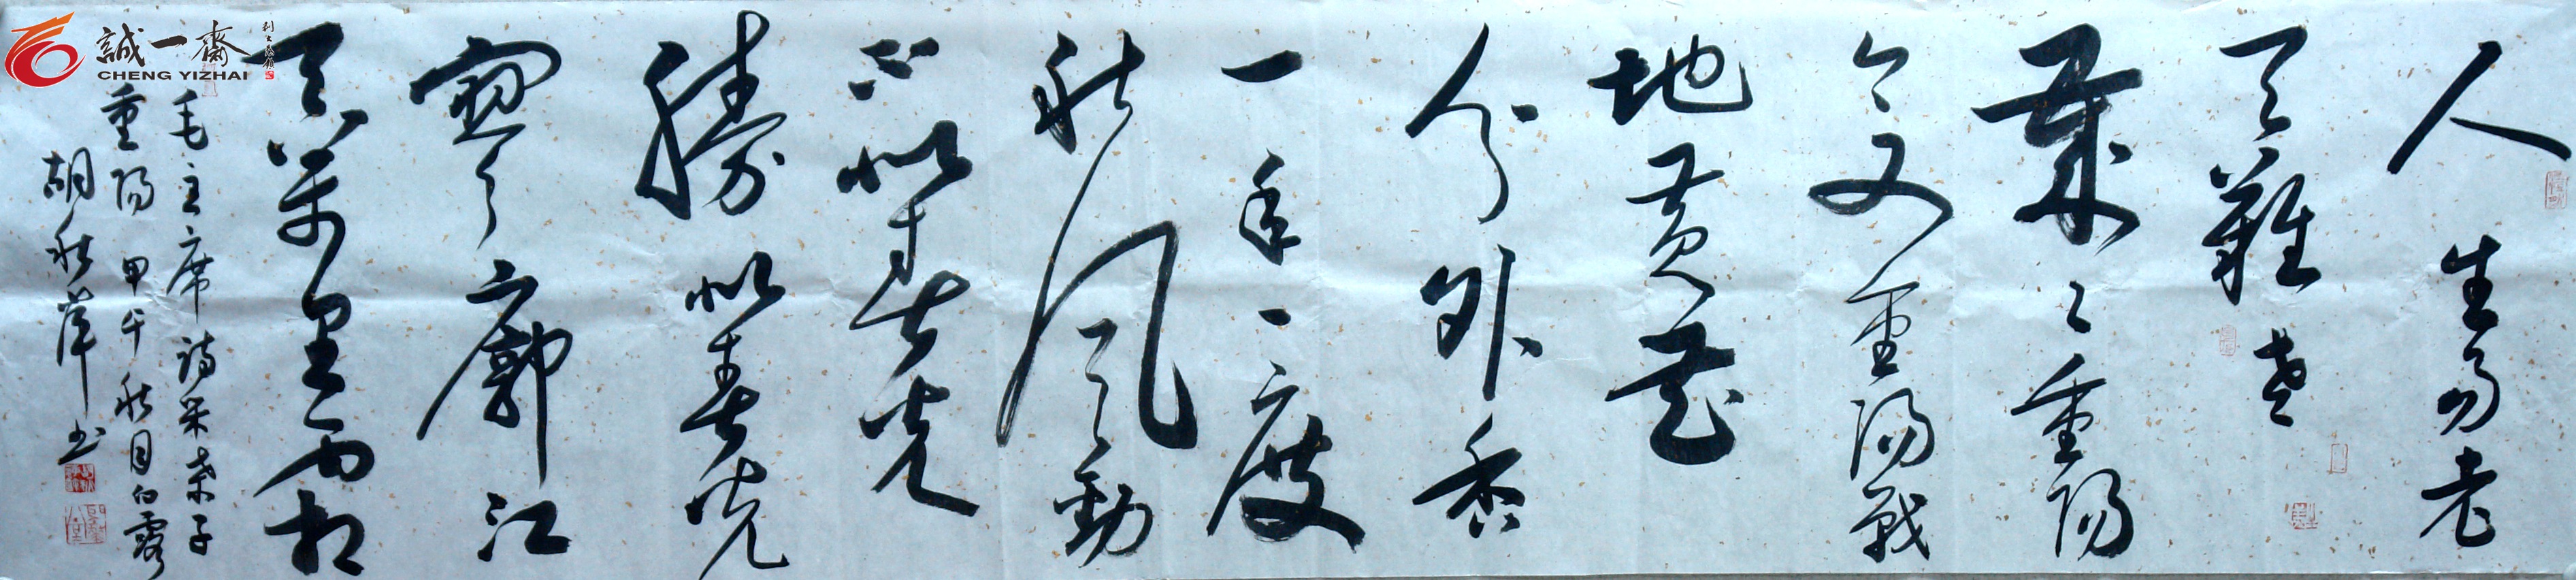 人生易老
天難老
歲々重陽
今又重陽戰
地黄花
分外香
一年一度
秋風勁
不似春光
勝似春光
寥廓江
天萬里霜
毛主席詩采桑子
重陽 甲午秋月白露
胡秋 书
誠一齋
CHENG YIZHAI